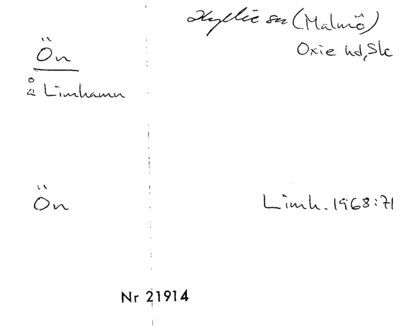 Hyllie sn (Malmö)
Ön
Oxie hd, Sk
å Limhamn
Ön
Limh. 1968:71
Nr 21914